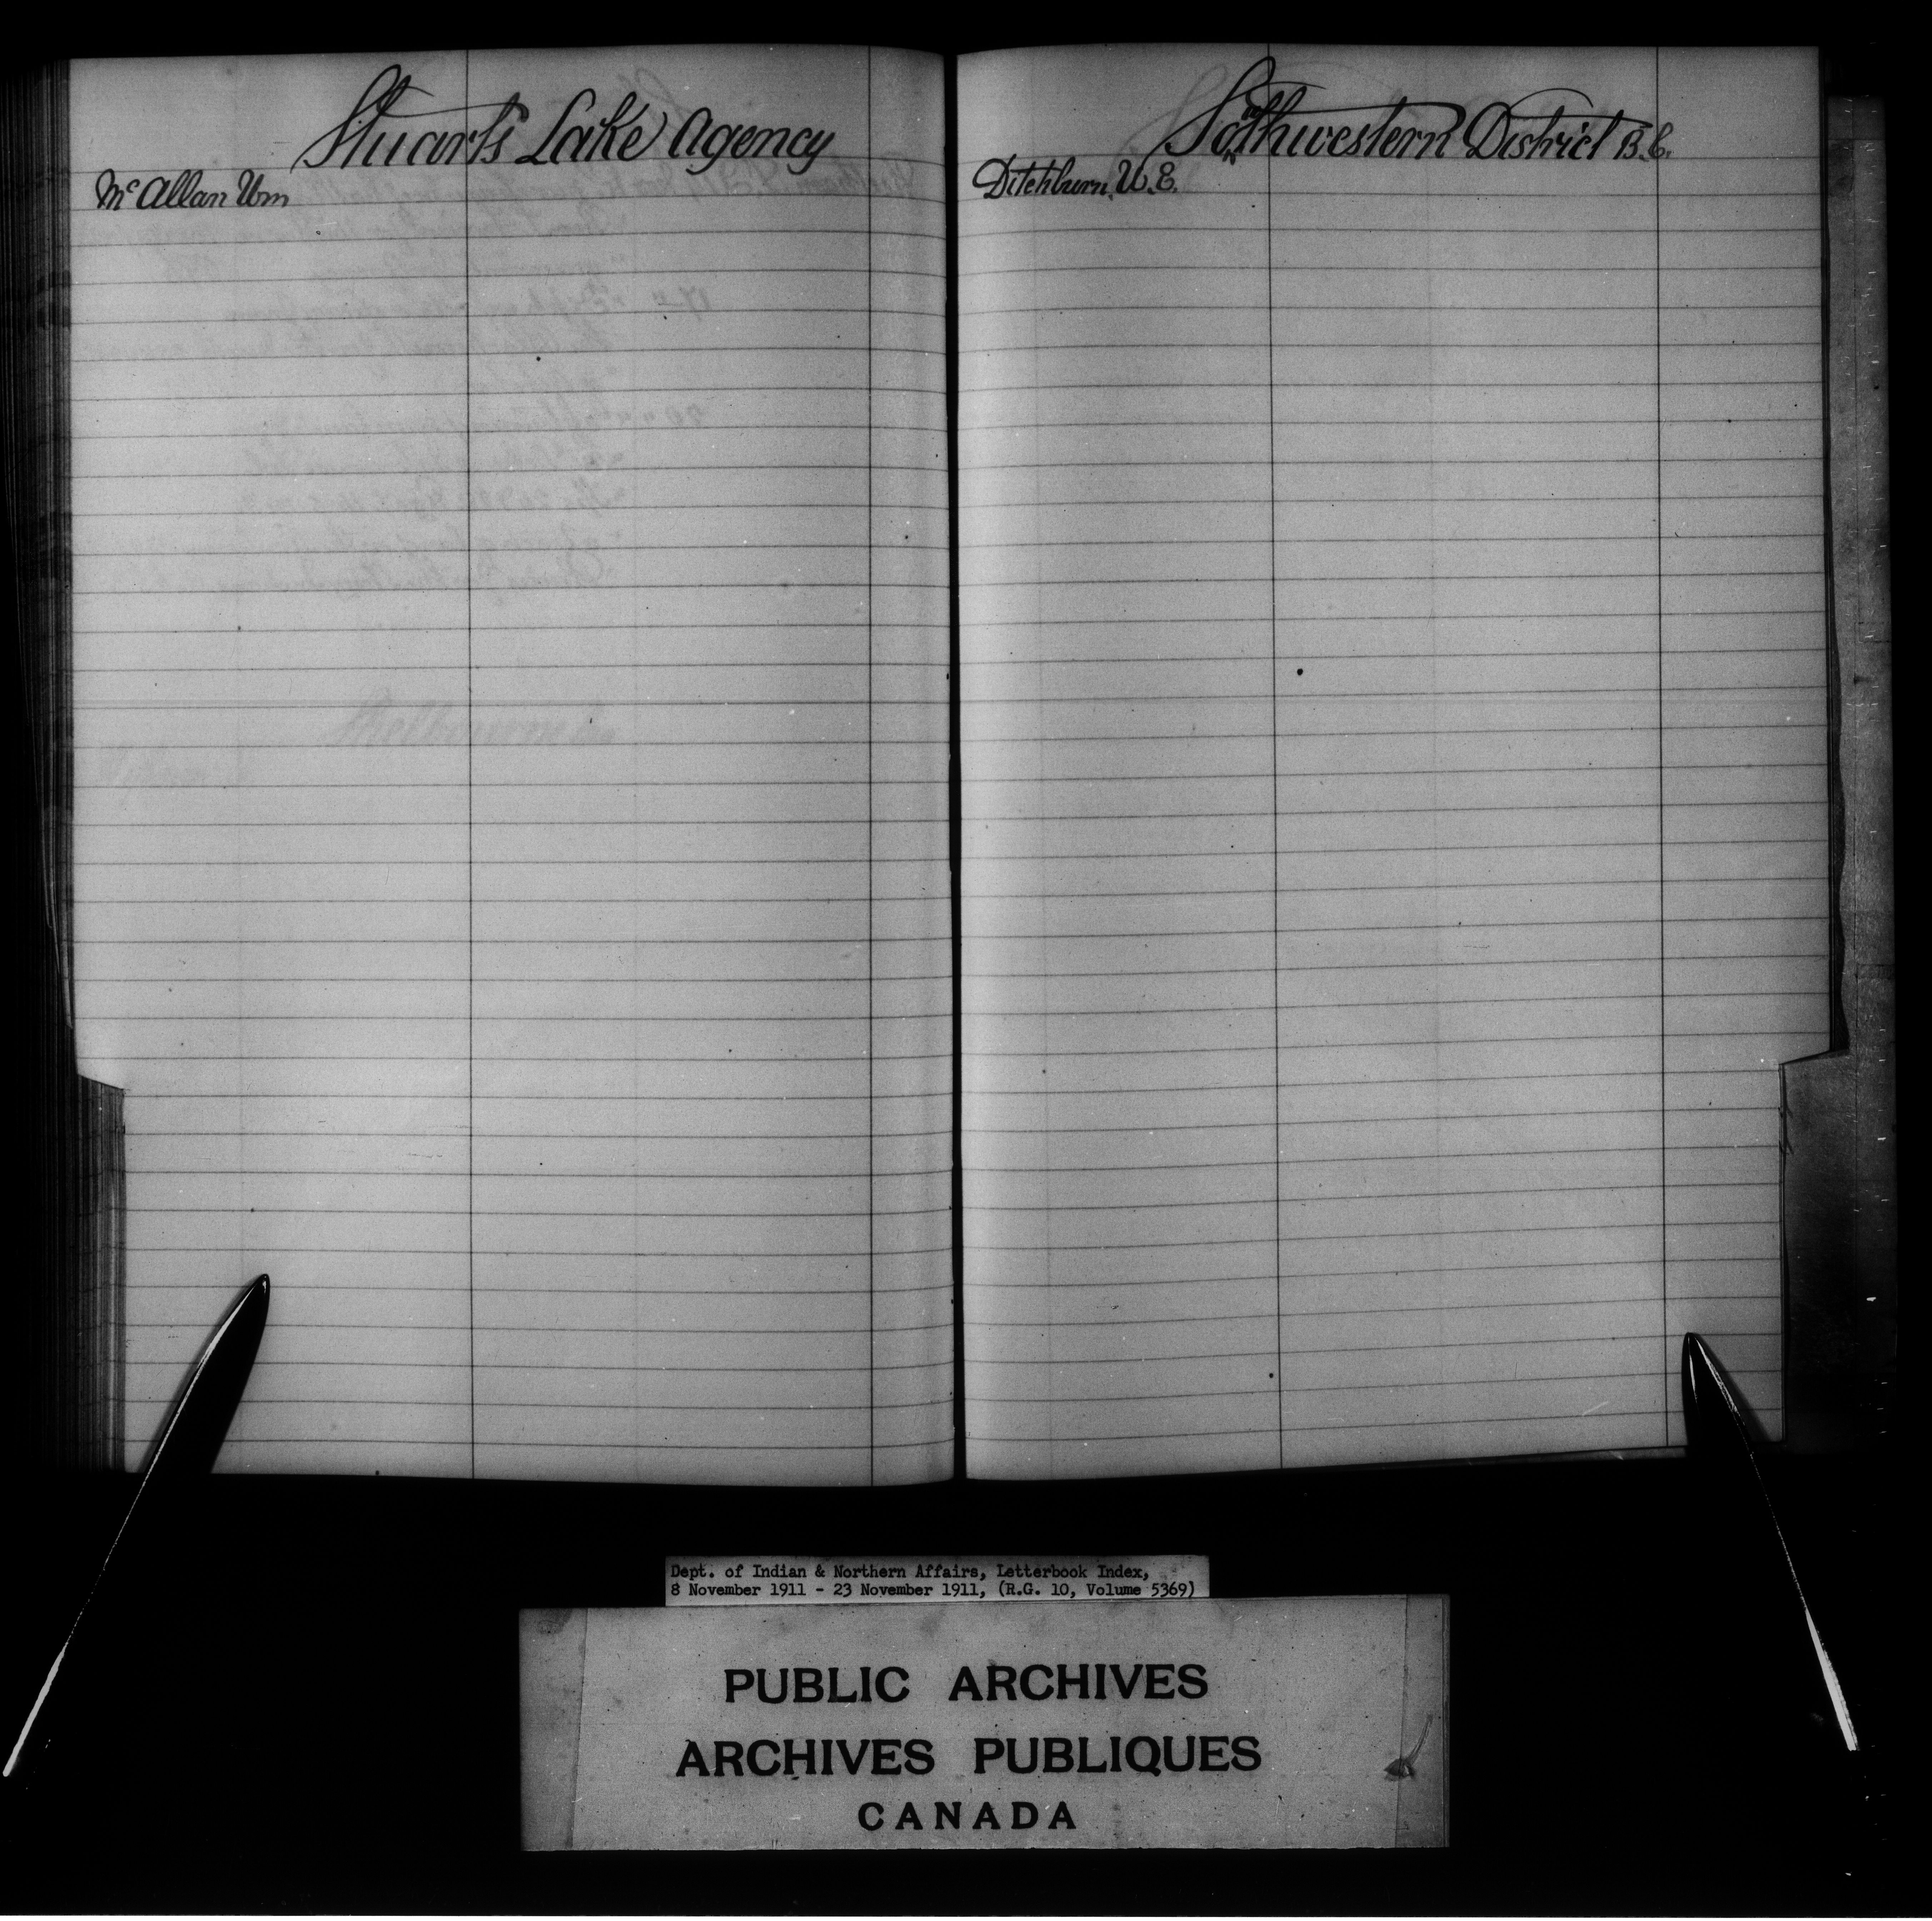 Stuarts Lake Agency
McAllan Wm
Southwestern District B.C.
Ditchburn, W.E.
Dept. of Indian & Northern Affairs, Letterbook Index,
8 November 1911 - 23 November 1911, (R.G. 10, Volume 5369)
PUBLIC ARCHIVES
ARCHIVES PUBLIQUES
CANADA